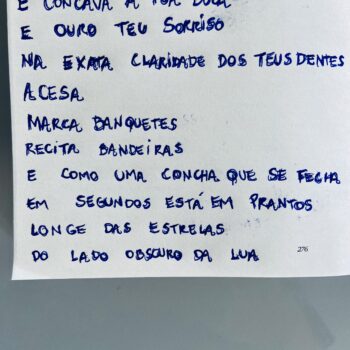 É CONCAVA A TUA BOCA
E OURO TEU SORRISO
NA EXATA CLARIDADE DOS TEUS DENTES
ACESA
MARCA BANQUETES
RECITA BANDEIRAS
E COMO UMA CONCHA QUE SE FECHA
EM SEGUNDOS ESTÁ EM PRANTOS
LONGE DAS ESTRELAS
DO LADO OBSCURO DA LUA
276